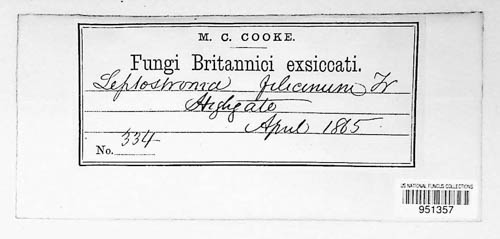 M. C. COOKE.
Fungi Britannici exsiccati.
Leptostroma filicinum Fr
Highgate
April 1865
No. 334
US NATIONAL FUNGUS COLLECTIONS
951357